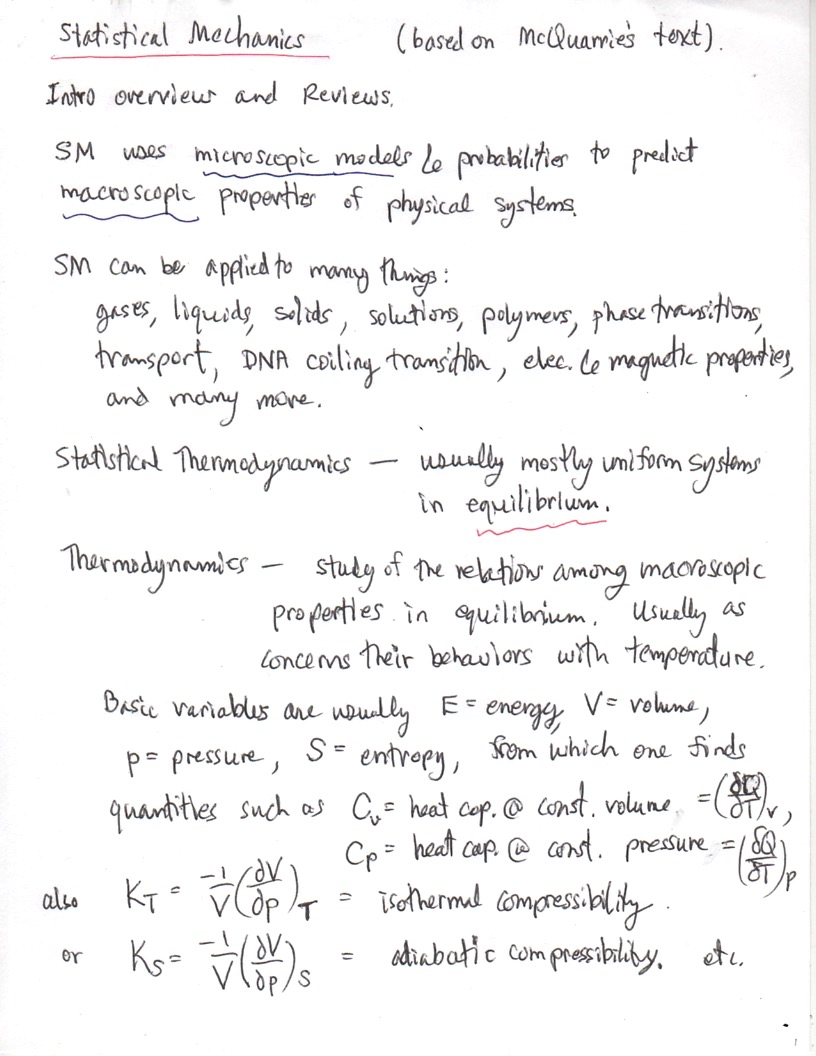 Statistical Mechanics (based on McQuarrie's text).
Intro overview and Reviews.
SM uses microscopic models & probabilities to predict
macroscopic properties of physical systems.
SM can be applied to many things:
gases, liquids, solids, solutions, polymers, phase transitions,
transport, DNA coiling transition, elec. & magnetic properties,
and many more.
Statistical Thermodynamics — usually mostly uniform systems
in equilibrium.
Thermodynamics — study of the relations among macroscopic
properties in equilibrium. Usually as
concerns their behaviors with temperature.
Basic variables are usually E = energy, V = volume,
p = pressure, S = entropy, from which one finds
quantities such as Cv = heat cap. @ const. volume = (∂Q/∂T)v,
Cp = heat cap. @ const. pressure = (∂Q/∂T)p
also KT = -1/V (∂V/∂p)T = isothermal compressibility.
or KS = -1/V (∂V/∂p)S = adiabatic compressibility. etc.
1